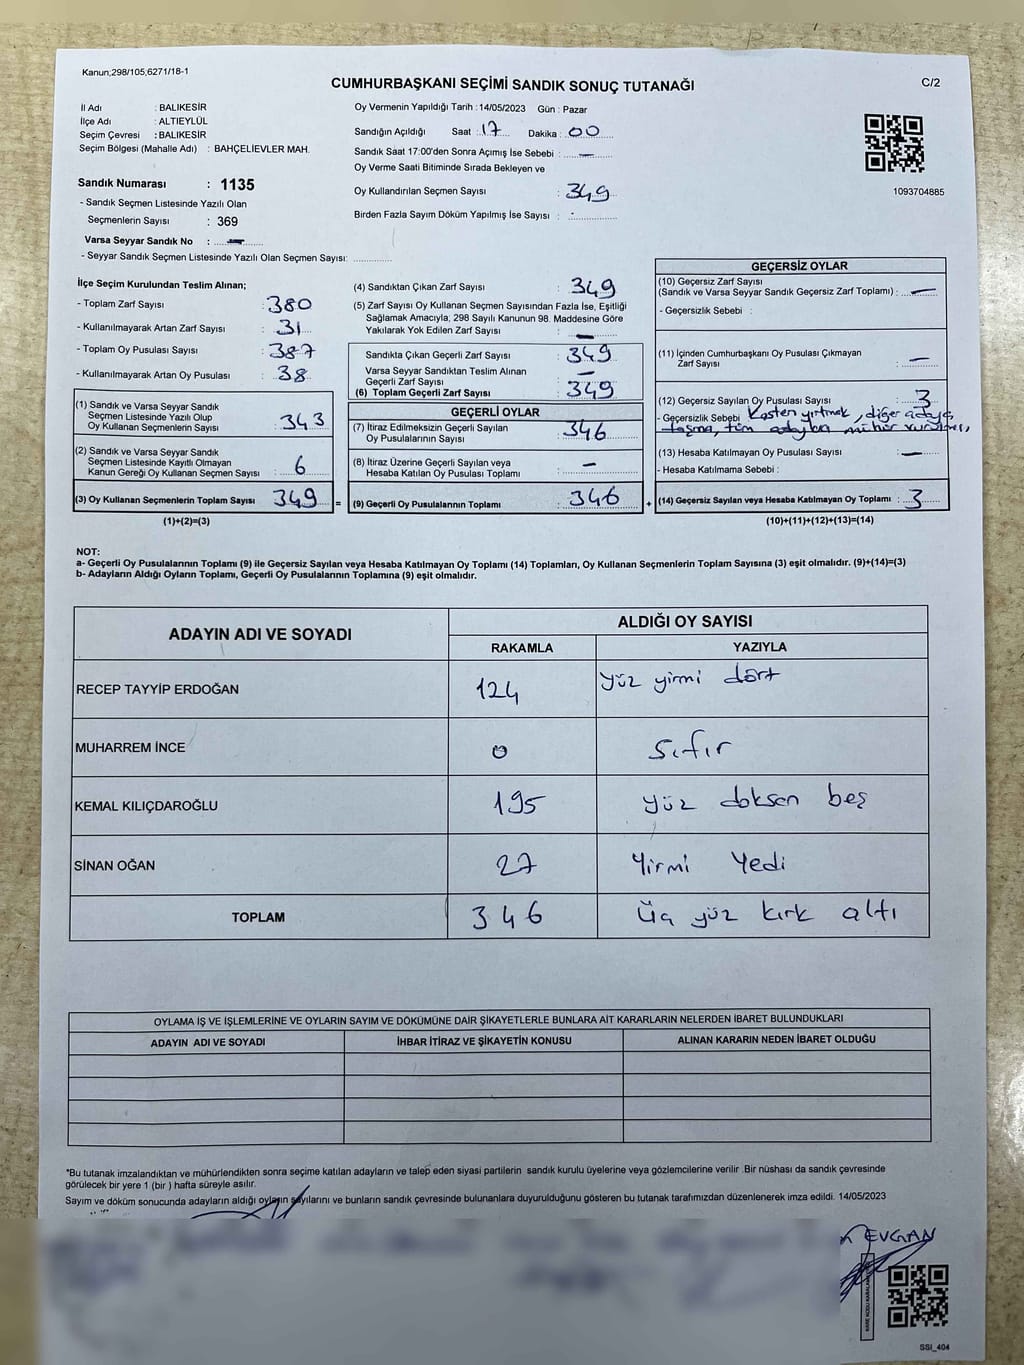 Kanun;298/105,6271/18-1
CUMHURBAŞKANI SEÇİMİ SANDIK SONUÇ TUTANAĞI
C/2
İl Adı : BALIKESİR
İlçe Adı : ALTIEYLÜL
Seçim Çevresi : BALIKESİR
Seçim Bölgesi (Mahalle Adı) : BAHÇELİEVLER MAH.
Sandık Numarası : 1135
- Sandık Seçmen Listesinde Yazılı Olan
Seçmenlerin Sayısı : 369
Varsa Seyyar Sandık No : —
- Seyyar Sandık Seçmen Listesinde Yazılı Olan Seçmen Sayısı:
Oy Vermenin Yapıldığı Tarih : 14/05/2023 Gün : Pazar
Sandığın Açıldığı Saat : 17 Dakika : 00
Sandık Saat 17:00'den Sonra Açımış İse Sebebi : —
Oy Verme Saati Bitiminde Sırada Bekleyen ve
Oy Kullandırılan Seçmen Sayısı : 349
Birden Fazla Sayım Döküm Yapılmış İse Sayısı :
1093704885
İlçe Seçim Kurulundan Teslim Alınan;
- Toplam Zarf Sayısı : 380
- Kullanılmayarak Artan Zarf Sayısı : 31
- Toplam Oy Pusulası Sayısı : 387
- Kullanılmayarak Artan Oy Pusulası : 38
(1) Sandık ve Varsa Seyyar Sandık
Seçmen Listesinde Yazılı Olup
Oy Kullanan Seçmenlerin Sayısı : 343
(2) Sandık ve Varsa Seyyar Sandık
Seçmen Listesinde Kayıtlı Olmayan
Kanun Gereği Oy Kullanan Seçmen Sayısı : 6
(3) Oy Kullanan Seçmenlerin Toplam Sayısı : 349 =
(1)+(2)=(3)
(4) Sandıktan Çıkan Zarf Sayısı : 349
(5) Zarf Sayısı Oy Kullanan Seçmen Sayısından Fazla İse, Eşitliği
Sağlamak Amacıyla; 298 Sayılı Kanunun 98. Maddesine Göre
Yakılarak Yok Edilen Zarf Sayısı : —
Sandıkta Çıkan Geçerli Zarf Sayısı : 349
Varsa Seyyar Sandıktan Teslim Alınan
Geçerli Zarf Sayısı : —
(6) Toplam Geçerli Zarf Sayısı : 349
GEÇERLİ OYLAR
(7) İtiraz Edilmeksizin Geçerli Sayılan
Oy Pusulalarının Sayısı : 346
(8) İtiraz Üzerine Geçerli Sayılan veya
Hesaba Katılan Oy Pusulası Toplamı : —
(9) Geçerli Oy Pusulalarının Toplamı : 346 +
GEÇERSİZ OYLAR
(10) Geçersiz Zarf Sayısı
(Sandık ve Varsa Seyyar Sandık Geçersiz Zarf Toplamı) : —
- Geçersizlik Sebebi :
(11) İçinden Cumhurbaşkanı Oy Pusulası Çıkmayan
Zarf Sayısı : —
(12) Geçersiz Sayılan Oy Pusulası Sayısı : 3
- Geçersizlik Sebebi Kasten yırtmak, diğer adaya
taşma, tüm adaylara mühür vurulması,
(13) Hesaba Katılmayan Oy Pusulası Sayısı : —
- Hesaba Katılmama Sebebi :
(14) Geçersiz Sayılan veya Hesaba Katılmayan Oy Toplamı : 3
(10)+(11)+(12)+(13)=(14)
NOT:
a- Geçerli Oy Pusulalarının Toplamı (9) ile Geçersiz Sayılan veya Hesaba Katılmayan Oy Toplamı (14) Toplamları, Oy Kullanan Seçmenlerin Toplam Sayısına (3) eşit olmalıdır. (9)+(14)=(3)
b- Adayların Aldığı Oyların Toplamı, Geçerli Oy Pusulalarının Toplamına (9) eşit olmalıdır.
ADAYIN ADI VE SOYADI ALDIĞI OY SAYISI
RAKAMLA YAZIYLA
RECEP TAYYİP ERDOĞAN 124 yüz yirmi dört
MUHARREM İNCE 0 Sıfır
KEMAL KILIÇDAROĞLU 195 yüz doksan beş
SİNAN OĞAN 27 Yirmi Yedi
TOPLAM 346 Üç yüz kırk altı
OYLAMA İŞ VE İŞLEMLERİNE VE OYLARIN SAYIM VE DÖKÜMÜNE DAİR ŞİKAYETLERLE BUNLARA AİT KARARLARIN NELERDEN İBARET BULUNDUKLARI
ADAYIN ADI VE SOYADI İHBAR İTİRAZ VE ŞİKAYETİN KONUSU ALINAN KARARIN NEDEN İBARET OLDUĞU
*Bu tutanak imzalandıktan ve mühürlendikten sonra seçime katılan adayların ve talep eden siyasi partilerin sandık kurulu üyelerine veya gözlemcilerine verilir .Bir nüshası da sandık çevresinde
görülecek bir yere 1 (bir ) hafta süreyle asılır.
Sayım ve döküm sonucunda adayların aldığı oyların sayılarını ve bunların sandık çevresinde bulunanlara duyurulduğunu gösteren bu tutanak tarafımızdan düzenlenerek imza edildi. 14/05/2023
EVGAN
SSI_404